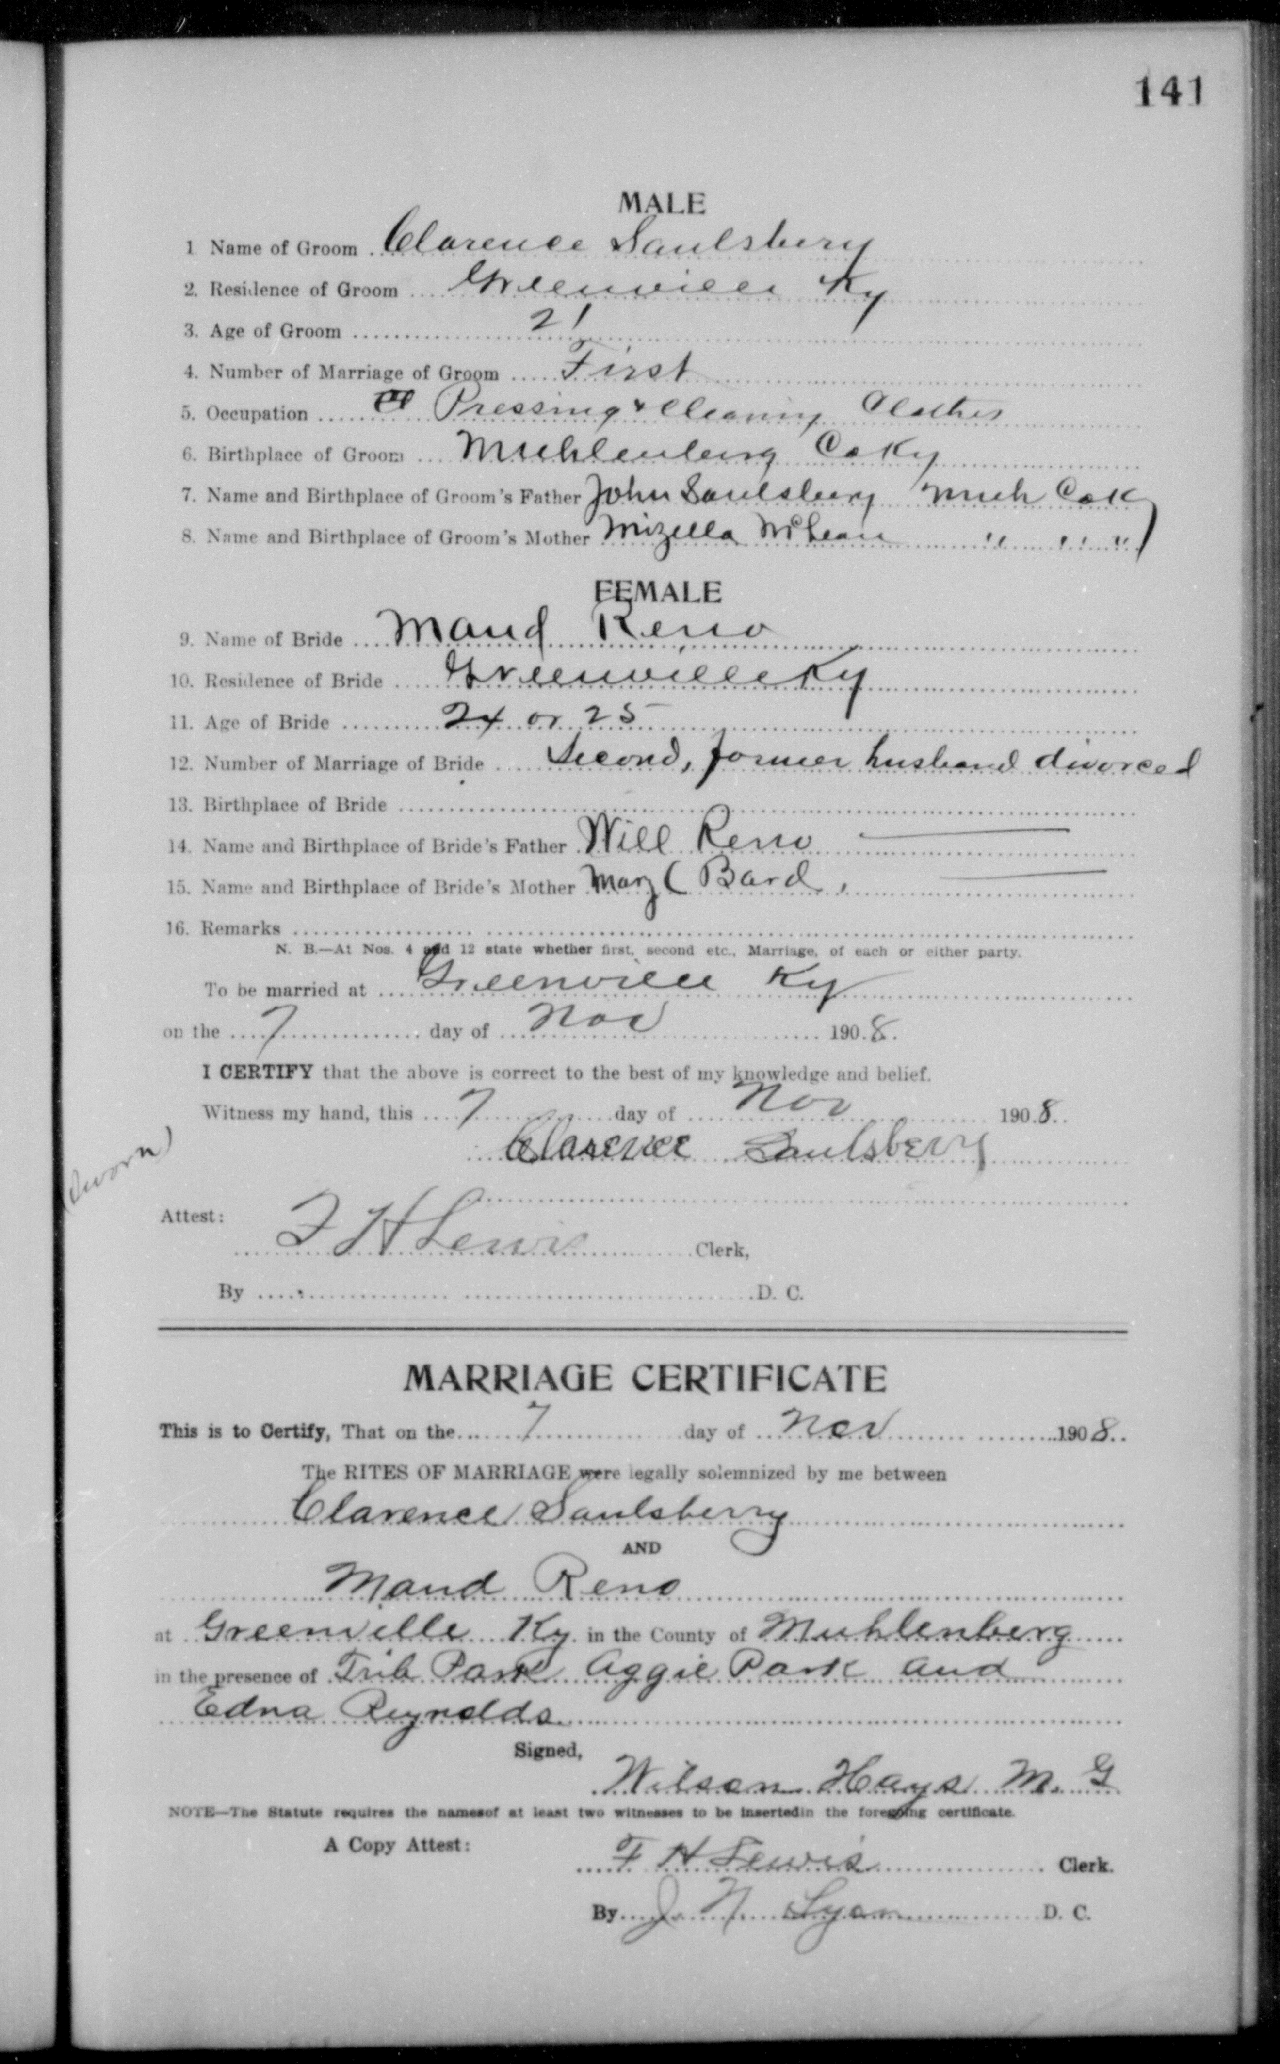 141
MALE
1 Name of Groom Clarence Saulsbery
2. Residence of Groom Greenville Ky
3. Age of Groom 21
4. Number of Marriage of Groom First
5. Occupation Pressing & Cleaning Clothes
6. Birthplace of Groom Muhlenberg Co Ky
7. Name and Birthplace of Groom's Father John Saulsbery Muh Co Ky
8. Name and Birthplace of Groom's Mother Mizella McLean " " "
FEMALE
9. Name of Bride Maud Reno
10. Residence of Bride Greenville Ky
11. Age of Bride 24 or 25
12. Number of Marriage of Bride Second, former husband divorced
13. Birthplace of Bride
14. Name and Birthplace of Bride's Father Will Reno
15. Name and Birthplace of Bride's Mother Mary C Bard.
16. Remarks
N. B.—At Nos. 4 and 12 state whether first, second etc., Marriage, of each or either party.
To be married at Greenville Ky
on the 7 day of Nov 1908.
I CERTIFY that the above is correct to the best of my knowledge and belief.
Witness my hand, this 7 day of Nov 1908.
Clarence Saulsbery
(Sworn)
Attest:
T H Lewis Clerk,
By D. C.
MARRIAGE CERTIFICATE
This is to Certify, That on the 7 day of Nov 1908.
The RITES OF MARRIAGE were legally solemnized by me between
Clarence Saulsberry
AND
Maud Reno
at Greenville Ky. in the County of Muhlenberg
in the presence of Park Aggie Park and
Edna Reynolds
Signed,
Wilson Hays M. G
NOTE—The Statute requires the namesof at least two witnesses to be insertedin the foregoing certificate.
A Copy Attest:
T H Lewis Clerk.
By J. N. Lyon D. C.